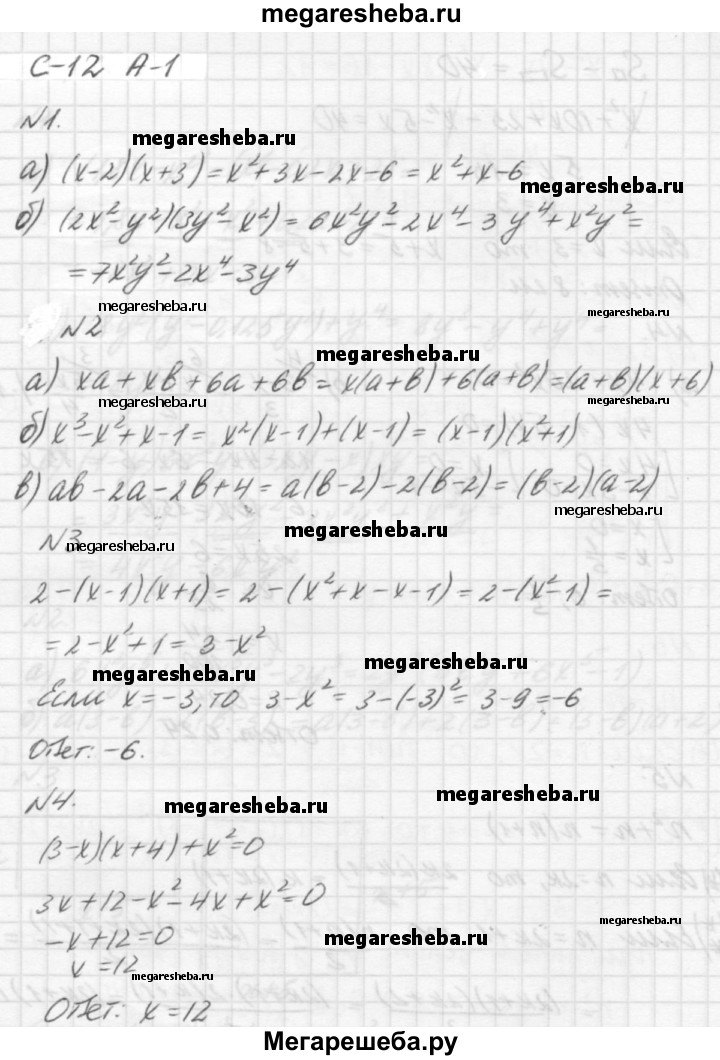 megaresheba.ru
С-12 А-1
№1.
megaresheba.ru
а) (x-2)(x+3) = x²+3x-2x-6 = x²+x-6
megaresheba.ru
б) (2x²-y²)(3y²-x²) = 6x²y²-2x⁴-3y⁴+x²y²=
=7x²y²-2x⁴-3y⁴
megaresheba.ru
megaresheba.ru
№2
megaresheba.ru
а) xa+xb+6a+6b = x(a+b)+6(a+b)=(a+b)(x+6)
megaresheba.ru
megaresheba.ru
б) x³-x²+x-1 = x²(x-1)+(x-1) = (x-1)(x²+1)
в) ab-2a-2b+4 = a(b-2)-2(b-2) = (b-2)(a-2)
megaresheba.ru
megaresheba.ru
№3
megaresheba.ru
2-(x-1)(x+1) = 2-(x²+x-x-1) = 2-(x²-1) =
=2-x²+1 = 3-x²
megaresheba.ru
megaresheba.ru
Если x=-3, то 3-x² = 3-(-3)² = 3-9=-6
Ответ: -6.
№4.
megaresheba.ru
megaresheba.ru
(3-x)(x+4)+x²=0
3x+12-x²-4x+x²=0
megaresheba.ru
-x+12=0
megaresheba.ru
x=12
megaresheba.ru
Ответ: x=12
Мегарешеба.ру